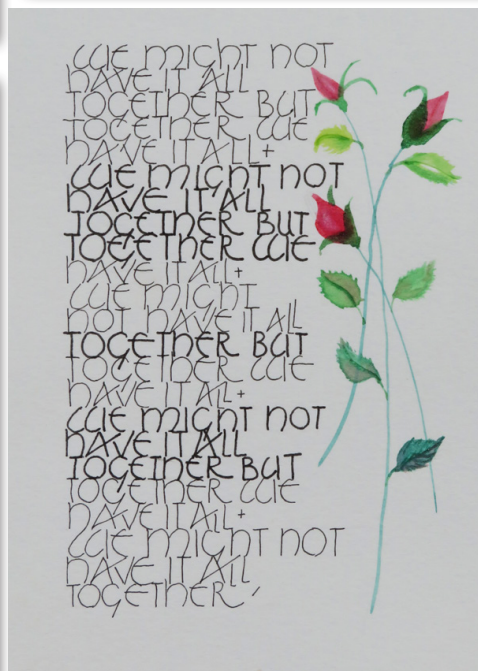 WE MIGHT NOT
HAVE IT ALL
TOGETHER BUT
TOGETHER WE
HAVE IT ALL+
WE MIGHT NOT
HAVE IT ALL
TOGETHER BUT
TOGETHER WE
HAVE IT ALL+
WE MIGHT
NOT HAVE IT ALL
TOGETHER BUT
TOGETHER WE
HAVE IT ALL+
WE MIGHT NOT
HAVE IT ALL
TOGETHER BUT
TOGETHER WE
HAVE IT ALL+
WE MIGHT NOT
HAVE IT ALL
TOGETHER